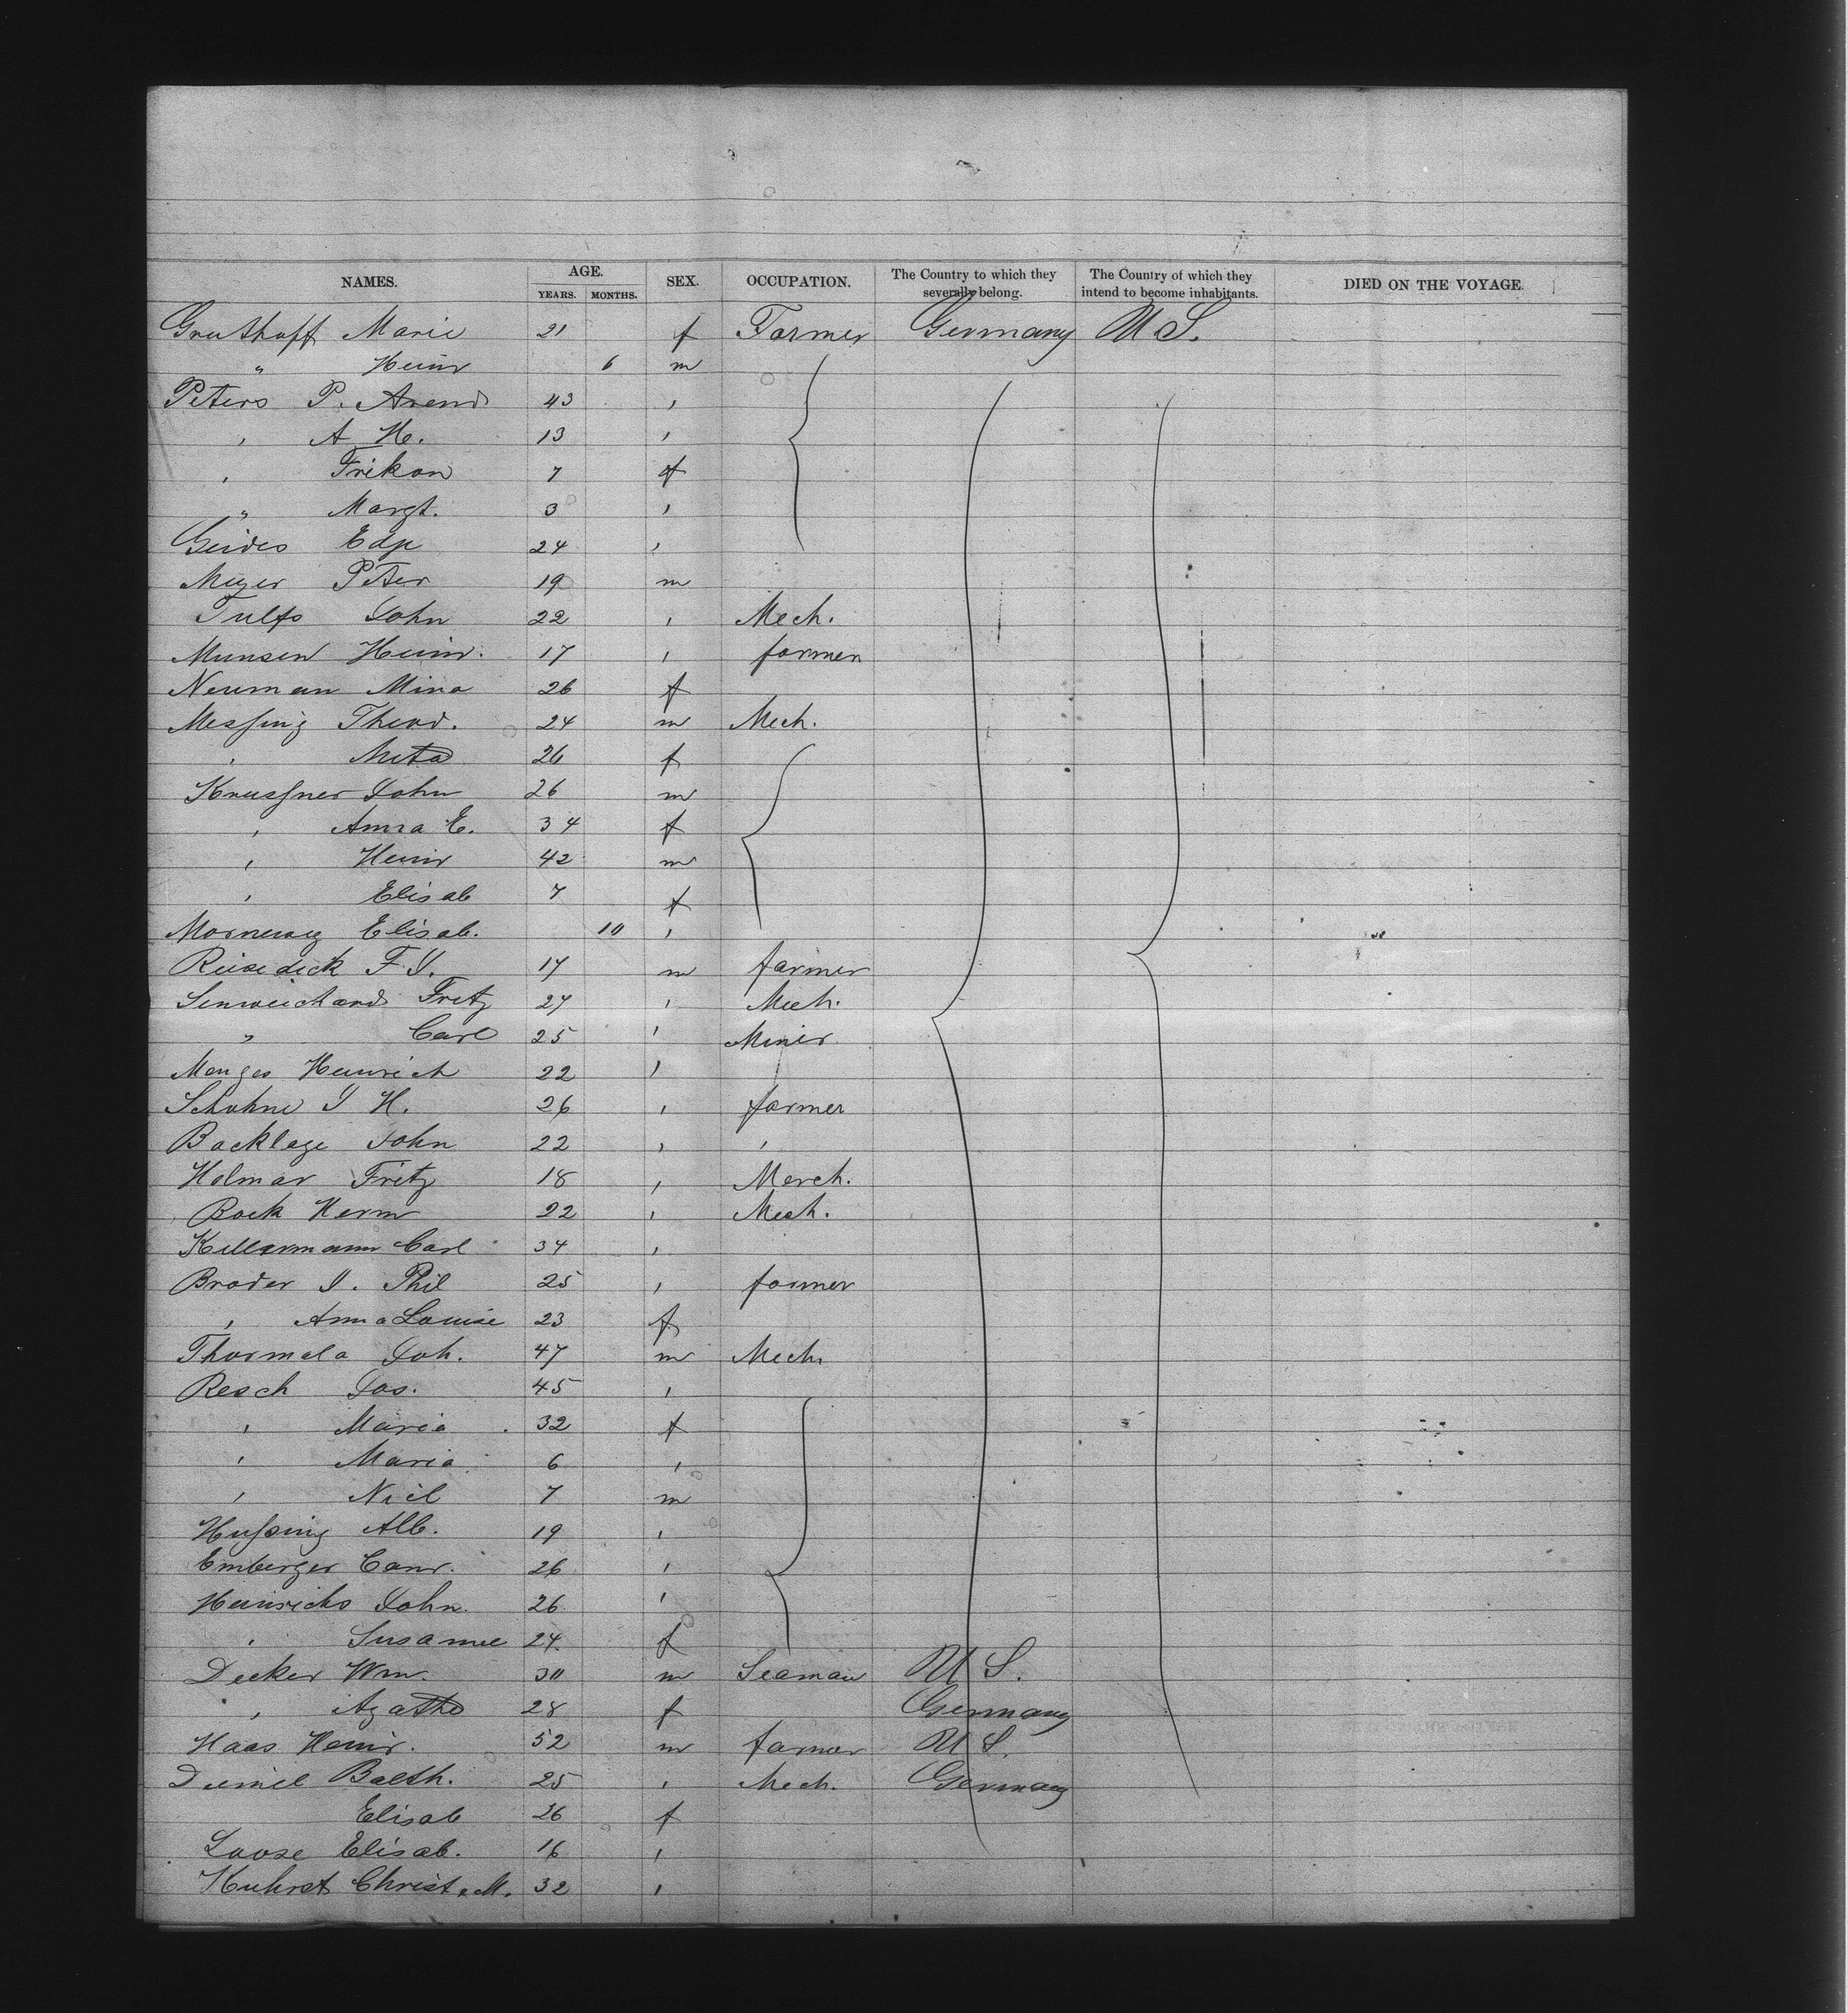 NAMES. AGE. YEARS. MONTHS. SEX. OCCUPATION. The Country to which they severally belong. The Country of which they intend to become inhabitants. DIED ON THE VOYAGE.
Gruthoff Marie 21 f Farmer Germany U S.
" Heinr 6 m
Peters P. Arend 43 ,
, A H. 13 ,
, Frikon 7 f
" Margt. 3 ,
Geides Edje 24 ,
Meyer Peter 19 m
Tulfs John 22 , Mech.
Munsen Heinr. 17 , farmer
Neuman Mina 26 f
Messing Theod. 24 m Mech.
, Meta 26 f
Krussner John 26 m
, Anna E. 34 f
, Heinr 42 m
, Elisab 7 f
Morneweg Elisab. 10 ,
Reisedick F. J. 17 m farmer
Fritz 27 , Mech.
" Carl 25 , Miner
Menges Heinrich 22 ,
Schohne J H. 26 , farmer
Backlage John 22 , ,
Helmar Fritz 18 , Merch.
Bock Herm 22 , Mech.
Kellermann Carl 34 ,
Broder J. Phil 25 , farmer
, Anna Louise 23 f
Thormela Joh. 47 m Mech
Resch Jos. 45 ,
, Maria 32 f
, Maria 6 ,
, Nicl 7 m
Hussing Alb. 19 ,
Emberger Conr. 26 ,
Heinrichs John. 26 ,
, Susanne 24. f
Decker Wm. 30 m Seaman U S.
, Agathe 28 f Germany
Haas Heinr. 52 m farmer U S.
Balth. 25 , Mech. Germany
Elisab 26 f
Loose Elisab. 16 ,
Christ. M. 32 ,